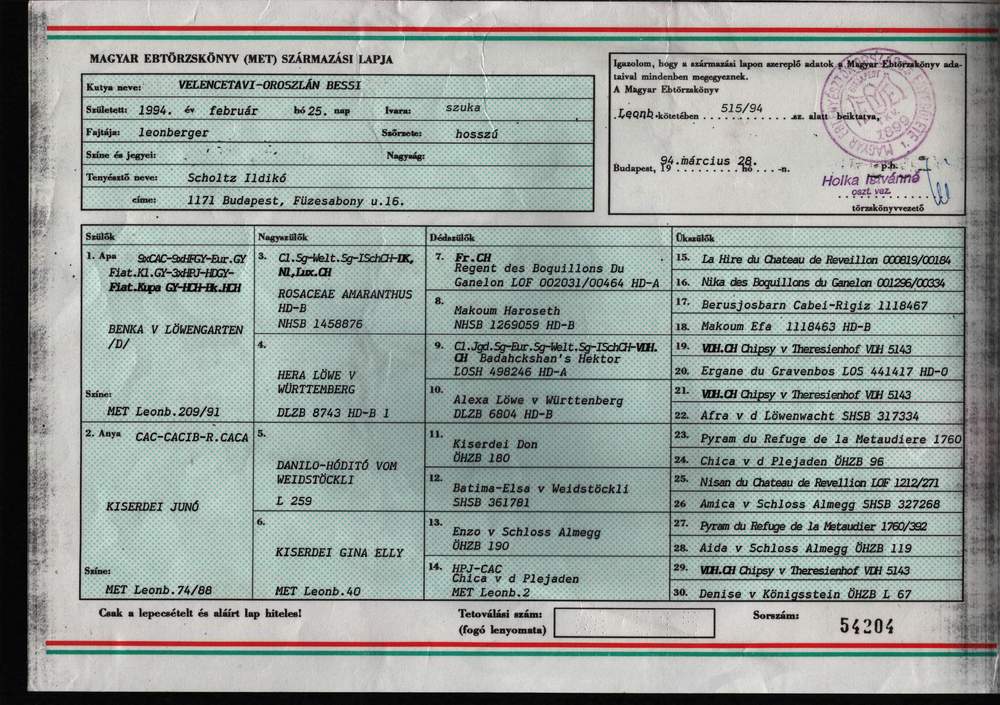 MAGYAR EBTÖRZSKÖNYV (MET) SZÁRMAZÁSI LAPJA
Kutya neve: VELENCETAVI-OROSZLÁN BESSI
Született: 1994. év február hó 25. nap Ivara: szuka
Fajtája: leonberger Szőrzete: hosszú
Színe és jegyei: Nagyság:
Tenyésztő neve: Scholtz Ildikó
címe: 1171 Budapest, Füzesabony u.16.
Igazolom, hogy a származási lapon szereplő adatok a Magyar Ebtörzskönyv ada-
taival mindenben megegyeznek.
A Magyar Ebtörzskönyv
Leonb. kötetében 515/94 sz. alatt beiktatva,
Budapest, 19 94.március 28. hó -n.
p.h.
Holka Istvánné
oszt. vez.
törzskönyvvezető
Szülők
1. Apa 9xCAC-9xHFGY-Eur.GY
Fiat.Kl.GY-3xHPJ-HDGY-
Fiat.Kupa GY-HCH-Bk.HCH
BENKA V LÖWENGARTEN
/D/
Színe:
MET Leonb.209/91
2. Anya CAC-CACIB-R.CACA
KISERDEI JUNÓ
Színe:
MET Leonb.74/88
Nagyszülők
3. Cl.Sg-Welt.Sg-ISchCH-DK,
NL,Lux.CH
ROSACEAE AMARANTHUS
HD-B
NHSB 1458876
4.
HERA LÖWE V
WÜRTTEMBERG
DLZB 8743 HD-B 1
5.
DANILO-HÓDITÓ VOM
WEIDSTÖCKLI
L 259
6.
KISERDEI GINA ELLY
MET Leonb.40
Dédszülők
7. Fr.CH
Regent des Boquillons Du
Ganelon LOF 002031/00464 HD-A
8.
Makoum Haroseth
NHSB 1269059 HD-B
9. Cl.Jgd.Sg-Eur.Sg-Welt.Sg-ISchCH-VDH.
CH Badahckshan's Hektor
LOSH 498246 HD-A
10.
Alexa Löwe v Württenberg
DLZB 6804 HD-B
11.
Kiserdei Don
ÖHZB 180
12.
Batima-Elsa v Weidstöckli
SHSB 361781
13.
Enzo v Schloss Almegg
ÖHZB 190
14. HPJ-CAC
Chica v d Plejaden
MET Leonb.2
Ükszülők
15. La Hire du Chateau de Reveillon 000819/00184
16. Nika des Boquillons du Ganelon 001296/00334
17. Berusjosbarn Cabei-Rigiz 1118467
18. Makoum Efa 1118463 HD-B
19. VDH.CH Chipsy v Theresienhof VDH 5143
20. Ergane du Gravenbos LOS 441417 HD-0
21. VDH.CH Chipsy v Theresienhof VDH 5143
22. Afra v d Löwenwacht SHSB 317334
23. Pyram du Refuge de la Metaudiere 1760
24. Chica v d Plejaden ÖHZB 96
25. Nisan du Chateau de Revellion LOF 1212/271
26 Amica v Schloss Almegg SHSB 327268
27. Pyram du Refuge de la Metaudier 1760/392
28. Aida v Schloss Almegg ÖHZB 119
29. VDH.CH Chipsy v Theresienhof VDH 5143
30. Denise v Königsstein ÖHZB L 67
Csak a lepecsételt és aláírt lap hiteles!
Tetoválási szám:
(fogó lenyomata)
Sorszám:
54204